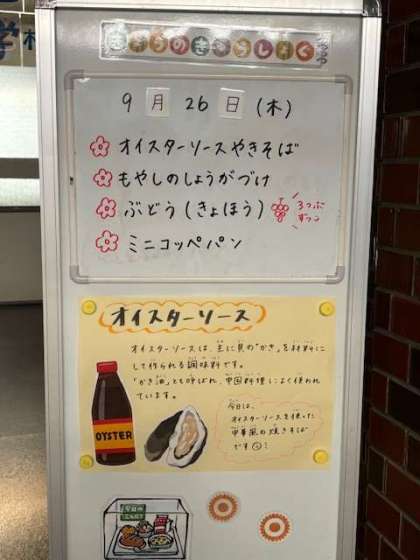 きょうのきゅうしょく
9月26日(木)
オイスターソースやきそば
もやしのしょうがづけ
ぶどう(きょほう)
3つぶ
ずつ
ミニコッペパン
オイスターソース
オイスターソースは、主に貝の"かき"を材料に
して作られる調味料です。
"かき油"とも呼ばれ、中国料理によく使われ
ています。
OYSTER
今日は、
オイスターソースを使った
中華風の焼きそば
です